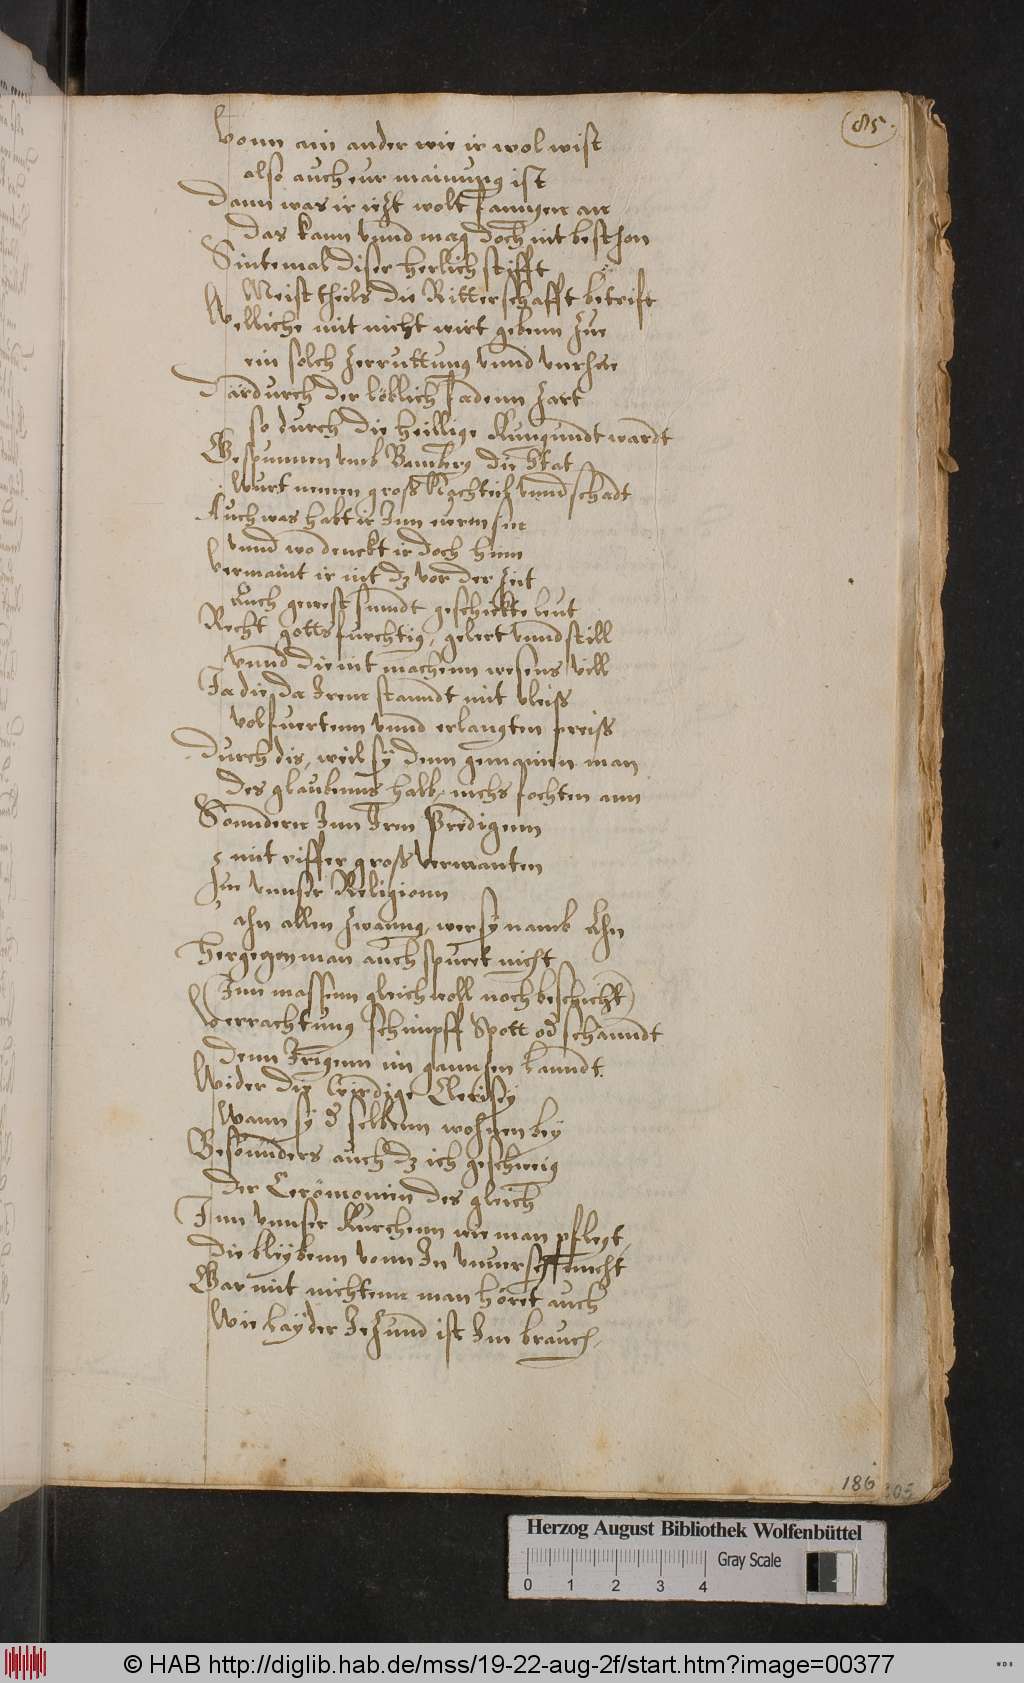 85.
Vonn ain ander wie ir wol wist
also auch eur mainung ist
Dann was ir ietzt wolt fanngen an
das kann vnnd mag doch nit besthon
Sintemal diser herlich stifft
Meist theils die Ritterschafft betrifft
Welliche mit nicht wirt gebenn zue
ein solch zerruttung vnnd vnrhue
Dardurch der löblich fadenn zart
so durch die heillige Kungundt wardt
Gespunnen vmb Bamberg die Stat
wurt nemen groß Nachteil vnnd schadt
Auch was habt ir Inn eurm sin
vnnd wo denckt ir doch hinn
Vermaint ir nit dz vor der Zeit
Auch gewest sinndt geschickte leut
Recht gottsfurchtig, gelert vnnd still
vnnd die nit machenn wesens vill
Ja die da Irem stanndt mit vleiss
volfuertenn vnnd erlangten preiss
Durch dis, weil sÿ denn gemainen man
des glaubenns halb, nichs fochten ann
Sonndern Inn Iren Predigenn
mit eiffer gross vermanten
Zue vnnser Religionn
ahn allen Zwanng, wer sÿ namb ahn
Hergegen man auch spuret nicht
(Inn massenn gleichwoll noch beschicht)
Verrachtung schimpff Spott od schanndt
Denn Irigenn im gannzen Lanndt.
Wider die wirdige Clerisÿ
Wann sÿ d selbenn wohnen beÿ
Besonnders auch dz ich geschweig
der Cerömonien des gleich
Inn vnnser Kurchenn wie man pflegt,
die bleÿbenn vonn In vnuerschmecht
Gar mit nichtenn man höret auch
Wie laÿder Jezund ist Im brauch.
186
305
Herzog August Bibliothek Wolfenbüttel
Gray Scale
0 1 2 3 4
© HAB http://diglib.hab.de/mss/19-22-aug-2f/start.htm?image=00377